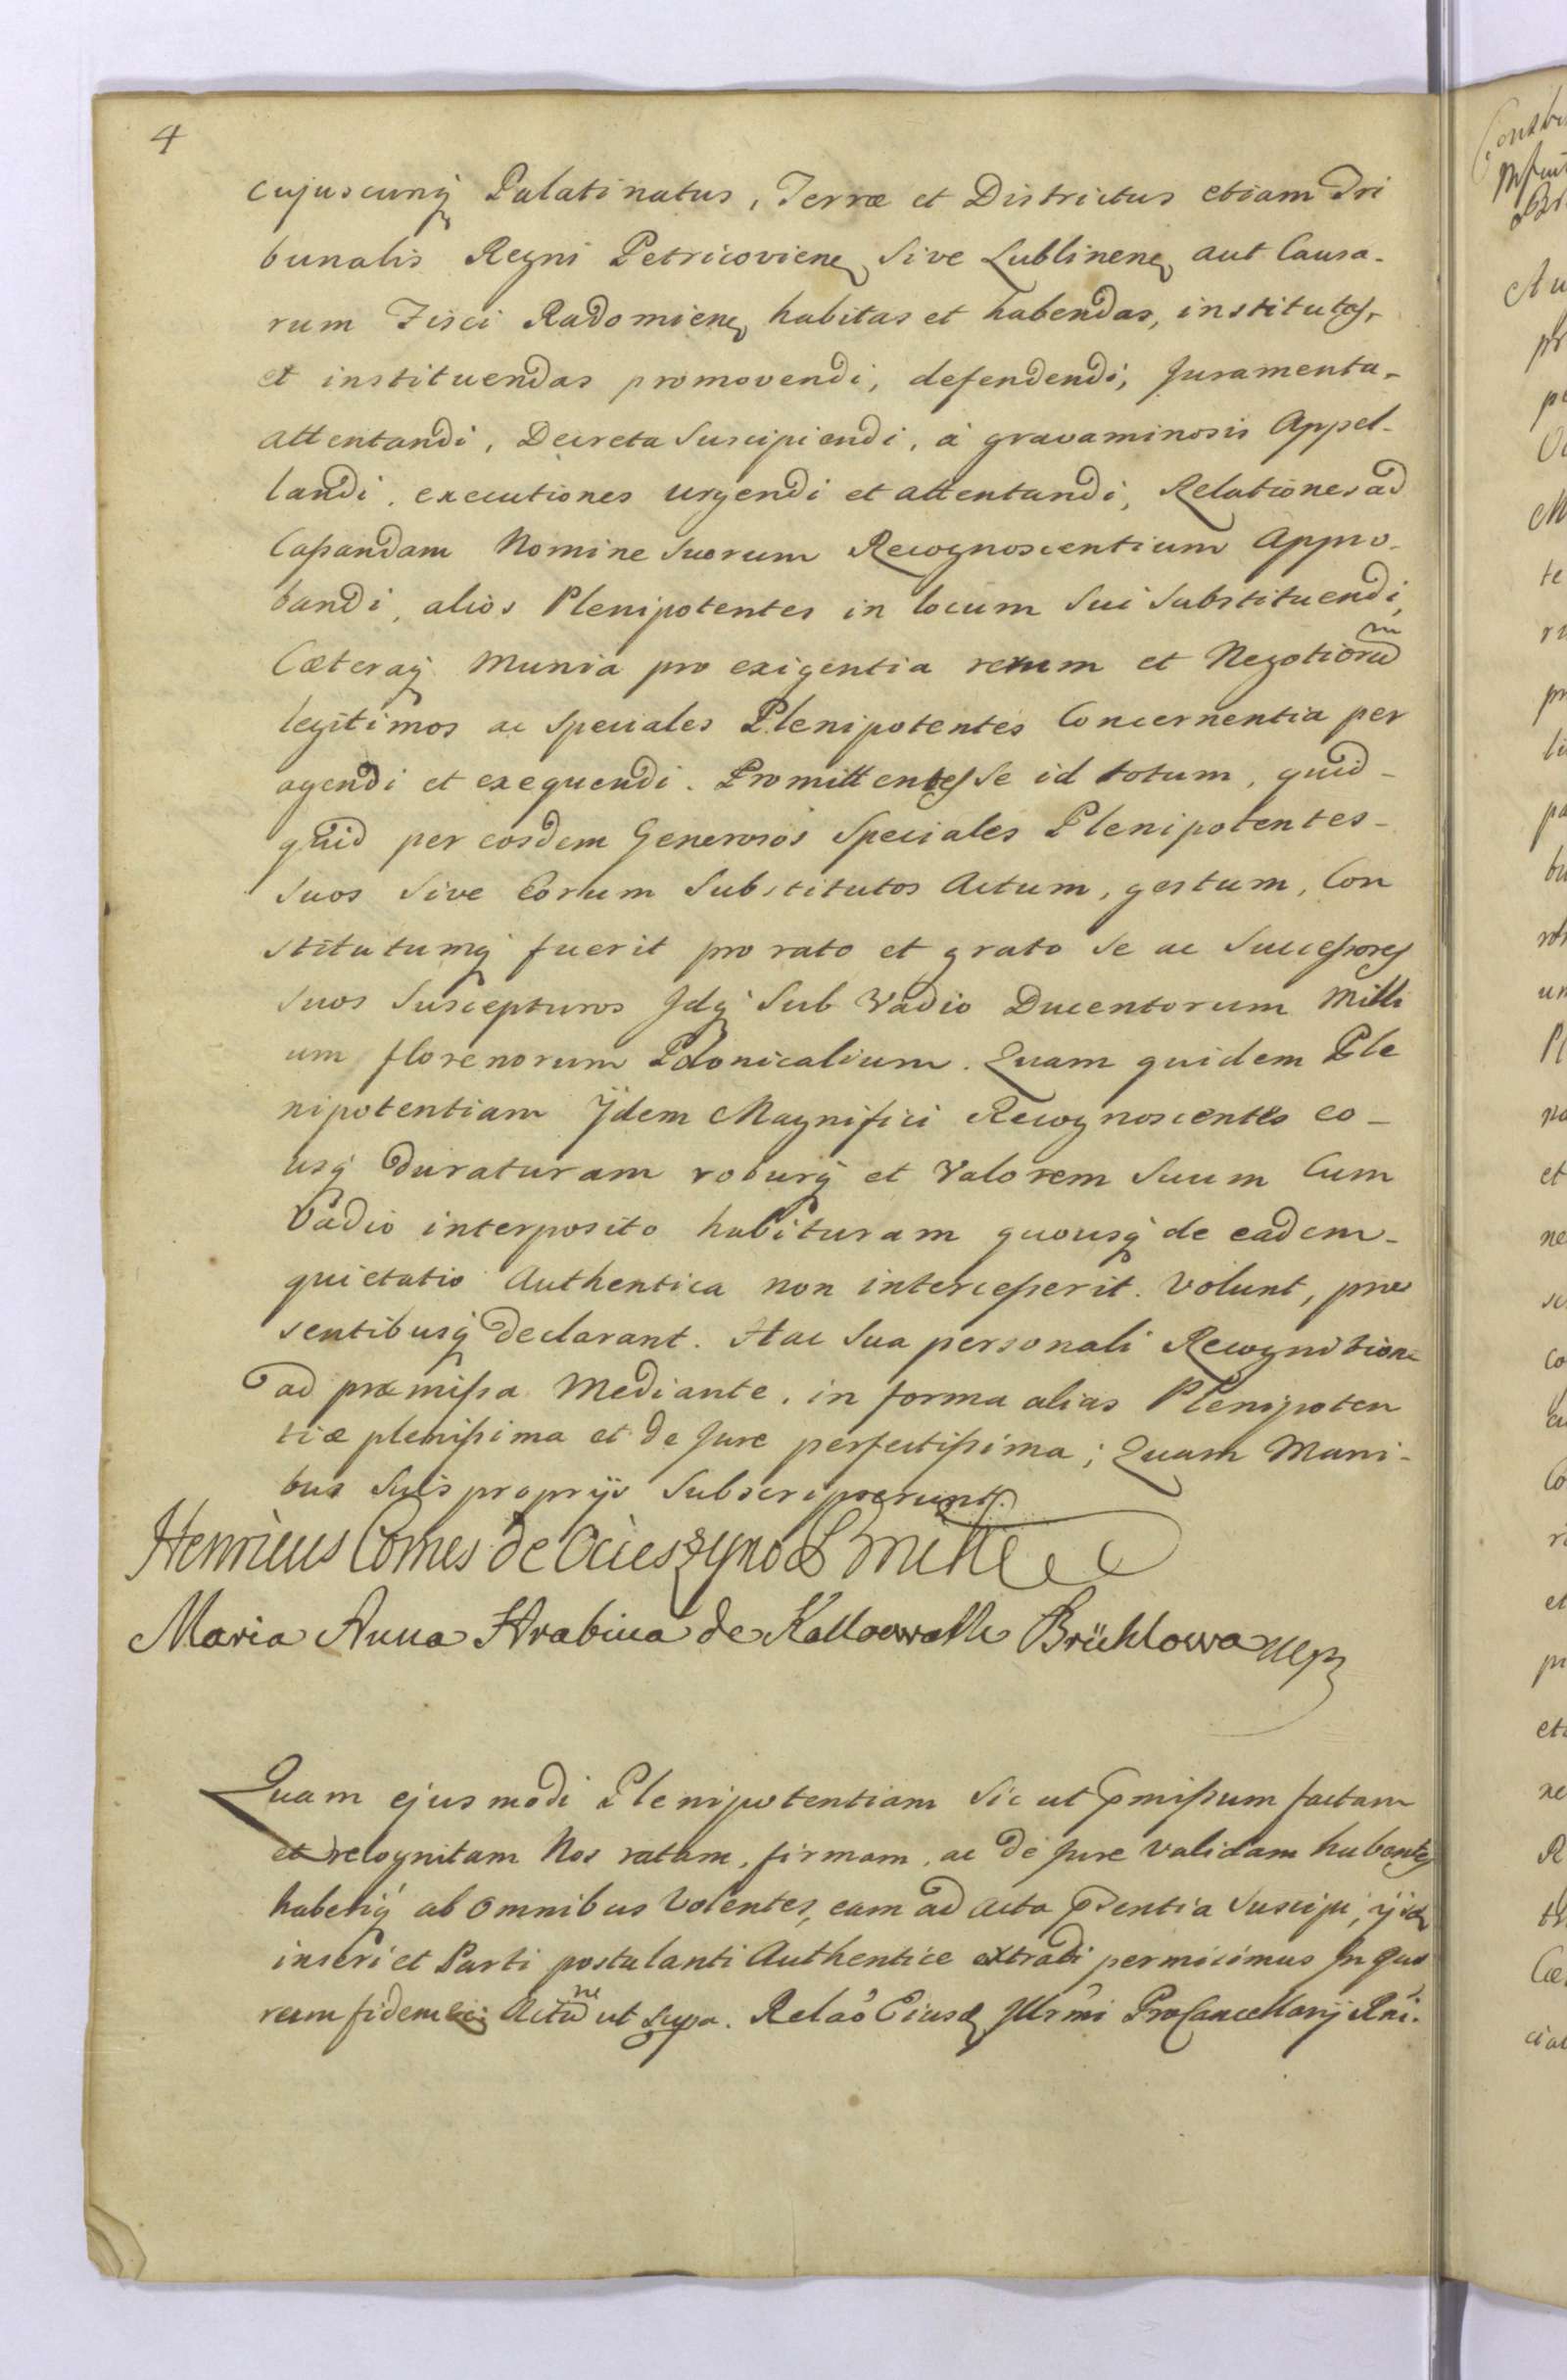 4
cujuscunq Palatinatus, Terræ et Districtus etiam Tri
bunalis Regni Petricovienę sive Lublinenę aut Causa-
rum Fisci Radomienę habitas et habendas, institutas,
et instituendas promovendi, defendendi, Juramenta-
attentandi, Decreta Suscipiendi, à gravaminosis Appel-
landi, executiones urgendi et attentandi, Relationes ad
Cassandam Nomine Suorum Recognoscentium Appro-
bandi, alios Plenipotentes in locum Sui Substituendi,
Cæteraq Munia pro exigentia rerum et Negotiorum
legitimos ac Speciales Plenipotentes Concernentia per
agendi et exequendi. Promittentes Se id totum, quid-
quid per eosdem Generosos Speciales Plenipotentes-
Suos Sive Eorum Substitutos Actum, gestum, Con
stitutumq fuerit pro rato et grato Se ac Successores
Suos Suscepturos Jdq Sub Vadio Ducentorum Milli
um florenorum Polonicalium. Quam quidem Ple
nipotentiam Yidem Magnifici Recognoscentes eo-
usq duraturam roburq et Valorem Suum Cum
Vadio interposito habituram quousq de eadem-
quietatio Authentica non intercesserit. Volunt, præ
sentibusq declarant. Hac Sua personali Recognitione
ad præmissa Mediante, in forma alias Plenipoten
tiæ plenissima et de Jure perfectissima; Quam Mani-
bus Suis proprijs Subscripserunt.
Henricus Comes de Ocieszyno Brühl
Maria Anna Hrabina de Kollowrath Brühlowa mp
Quam ejusmodi Plenipotentiam Sic ut pmissum factam
et recognitam Nos ratam, firmam, ac de Jure Validam habentes
haberiq ab Omnibus Volentes, eam ad Acta psentia Suscipi, ijsdę
inseri et Parti postulanti Authentice extradi permisimus Jn quo
rum fidem Actum ut Supa. Relaõ Eiusdę Jllrmi ProCancellarij Rni.